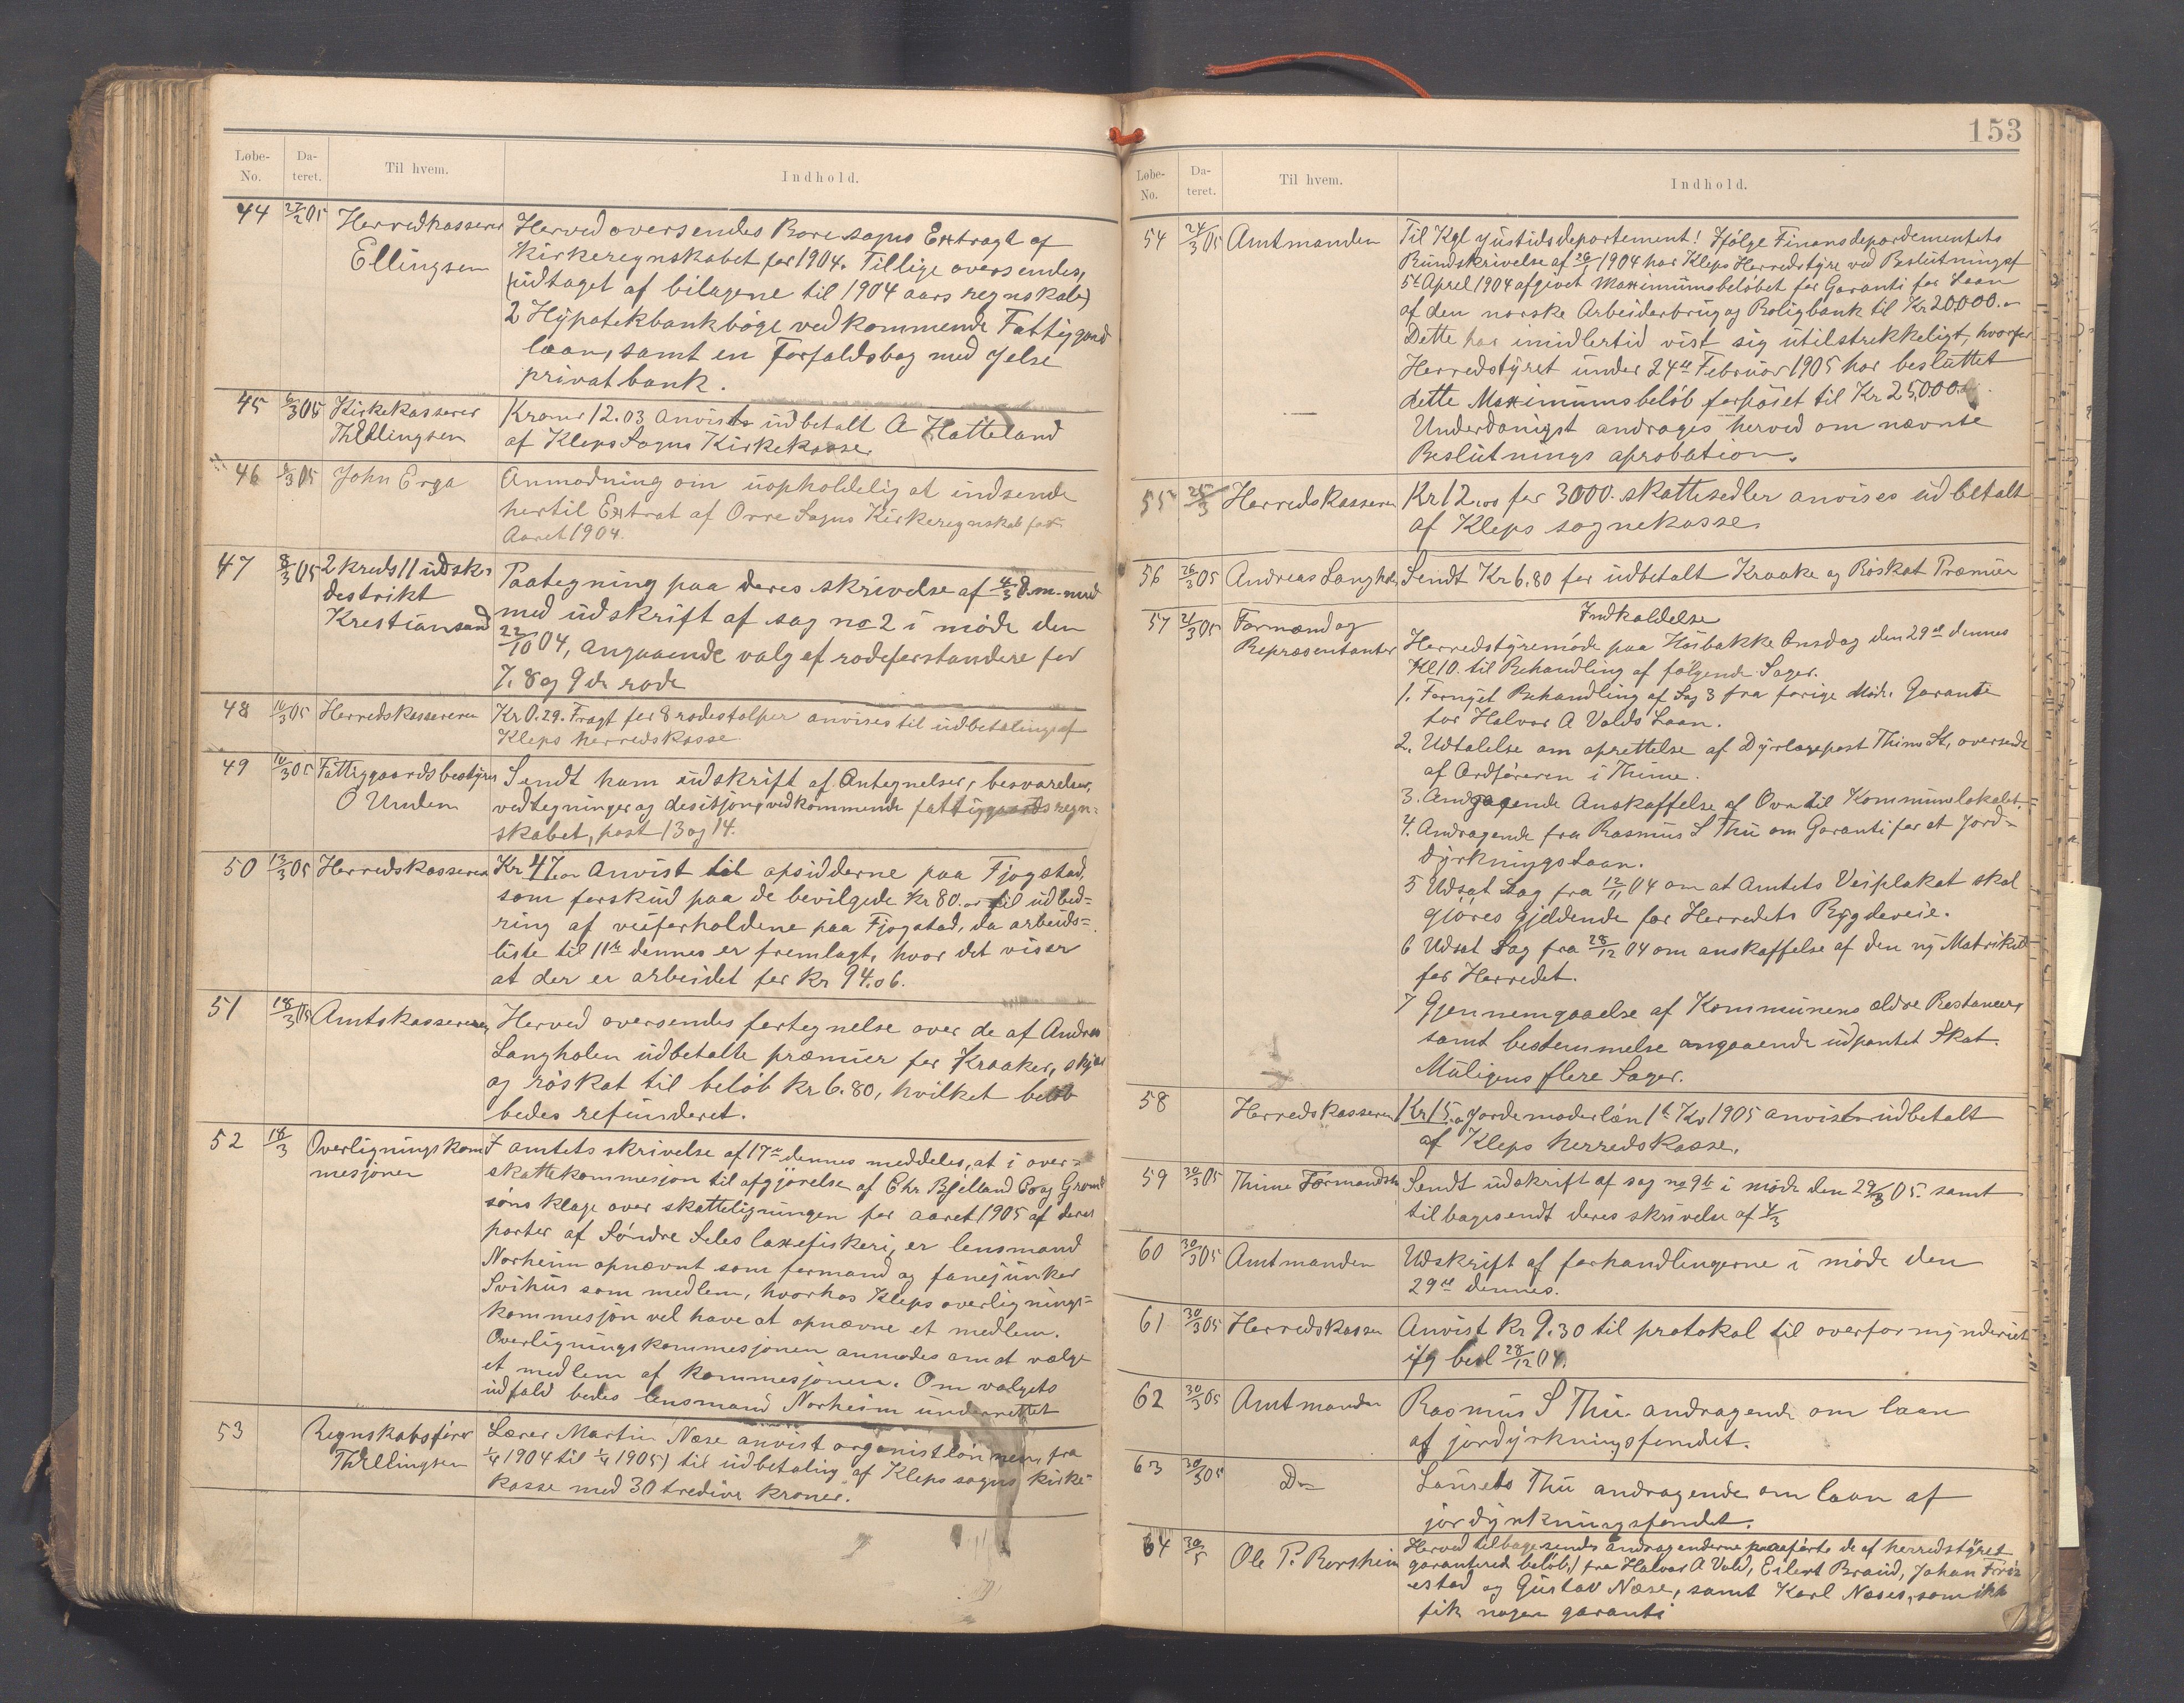 Løbe-No.	Da-teret.	Til hvem.	Indhold.
44 27/2 05 Herredkasserer Ellingsen
Herved oversendes Bore sogns Extragt af
Kirkeregnskabet for 1904. Tillige oversendes,
(udtaget af bilagene til 1904 aars regnskab)
2 Hypotekbankbøge vedkommende Fattiggaard
laan, samt en Forfaldsbog med Jelse
privatbank.
45 6/3 05 Kirkekasserer Th Ellingsen
Kroner 12.03 anvist udbetalt A Hatteland
af Kleps Sogns Kirkekasse.
46 8/3 05 John Erga
Anmodning om uopholdelig at indsende
hertil Extrat af Orre Sogns Kirkeregnskab for
Aaret 1904.
47 8/3 05 2 kreds 11 udskr destrikt Krestiansand
Paategning paa deres skrivelse af 4/3 d.m. med
med udskrift af sag no 2 i møde den
22/10 04, angaaende valg af rodeforstandere for
7. 8 og 9de rode
48 10/3 05 Herredskassereren
Kr 0.29. Fragt for 8 rodestolper anvises til udbetaling af
Kleps herredskasse.
49 10/3 05 Fattiggaardsbestyrer O Unden
Sendt ham udskrift af Antegnelser, besvarelser,
vedtegninger og desisjon, vedkommende fattiggaardsregn=
skabet, post 13 og 14.
50 13/3 05 Herredskassereren
Kr 47.00 Anvist til opsidderne paa Fjogstad,
som forskud paa de bevilgede Kr 80.00 til udbed=
ring af veiforholdene paa Fjogstad, da arbeids=
liste til 11te dennes er fremlagt, hvor det viser
at der er arbeidet for Kr 94.06.
51 18/3 05 Amtskassereren
Herved oversendes fortegnelse over de af Andreas
Langholen udbetalte præmier for Kraaker, skjør
og røskat til beløb Kr 6.80, hvilket beløb
bedes refunderet.
52 18/3 Overligningskom mesjonen
I amtets skrivelse af 17de dennes meddeles, at i over=
skattekommesjon til afgjørelse af Chr Bjelland Co og
søns klage over skatteligningen for aaret 1905 af deres
parter af Søndre Seles laxefiskeri, er lensmand
Norheim opnævnt som formand og fanejunker
Svihus som medlem, hvorhos Kleps overlignings=
kommesjon vel have at opnævne et medlem.
Overligningskommesjonen anmodes om at vælge
et medlem af kommesjonen. Om valgets
udfald bedes lensmand Norheim underrettet
53 Regnskabsfører Th Ellingsen
Lærer Martin Næse anvist organistlønnen, fra
1/4 1904 til 1/4 1905) til udbetaling af Kleps sogns kirke=
kasse med 30 tredive kroner.
153
Løbe-No.	Da-teret.	Til hvem.	Indhold.
54 24/3 05 Amtmanden
Til Kgl Justidsdepartement! Ifølge Finansdepardementets
Rundskrivelse af 26/1 1904 har Kleps Herredstyre ved Beslutning af
5te April 1904 afgivet Maximumsbeløbet for Garanti for Laan
af den norske Arbeiderbrug og Boligbank til Kr 20,000.00
Dette har imidlertid vist sig utilstrekkeligt, hvorfor
Herredstyret under 24de Februar 1905 har besluttet
dette Maximumsbeløb forhöiet til Kr 25,000.00.
Underdanigst andrages herved om nævnte
Beslutnings aprobation.
55 25/3 Herredskasseren
Kr 12.00 for 3000. skattesedler anvises udbetalt
af Kleps sognekasse.
56 26/3 05 Andreas Langholen
Sendt Kr 6.80 for udbetalt Kraake og Røskat Præmier
57 21/3 05 Formænd og Repræsentanter
Indkaldelse
Herredstyremøde paa Husbakke Onsdag den 29de dennes
Kl 10. til Behandling af følgende Sager.
1. Fornyet Behandling af Sag 3 fra forige Møde. Garanti
for Halvor A Volds Laan.
2. Udtalelse om oprettelse af Dyrlægepost Thime St, oversendt
af Ordføreren i Thime.
3. Angaaende Anskaffelse af Ovn til Kommunelokalet.
4. Andragende fra Rasmus S Thu om Garanti for at Jord-
dyrkningslaan.
5 Udsat Sag fra 12/11 04 om at Amtets Veiplakat skal
gjöres gjeldende for Herredets Bygdeveie.
6 Udsat Sag fra 28/12 04 om anskaffelse af den ny Matrikul
for Herredet.
7 Gjennemgaaelse af Kommunens ældre Restancer,
samt bestemmelse angaaende udpantet Skat.
Muligens flere Sager.
58 Herredskasseren
Kr 15.00 Jordemoderløn 1ste Kv 1905 anvist udbetalt
af Kleps herredskasse.
59 30/3 05 Thime Formandsk
Sendt udskrift af sag no 9b i møde den 29/3 05. samt
tilbagesendt deres skrivelse af 4/3
60 30/3 05 Amtmanden
Udskrift af forhandlingerne i møde den
29de dennes.
61 30/3 05 Herredskassen
Anvist Kr 9.30 til protokol til overformynderiet
ifg besl 28/12 04.
62 30/3 05 Amtmanden
Rasmus S Thu. andragende om laan
af jordyrkningsfondet.
63 30/3 05 Do
Laurets Thu andragende om laan af
jordyrkningsfondet.
64 30/5 Ole P. Borsheim
Herved tilbagesendes andragenderne paaførte de af herredstyret
garanterede beløb,) fra Halvor A Vold, Eilert Braud, Johan
estad og Gustav Næse, samt Karl Næses, som ikke
fik nogen garanti